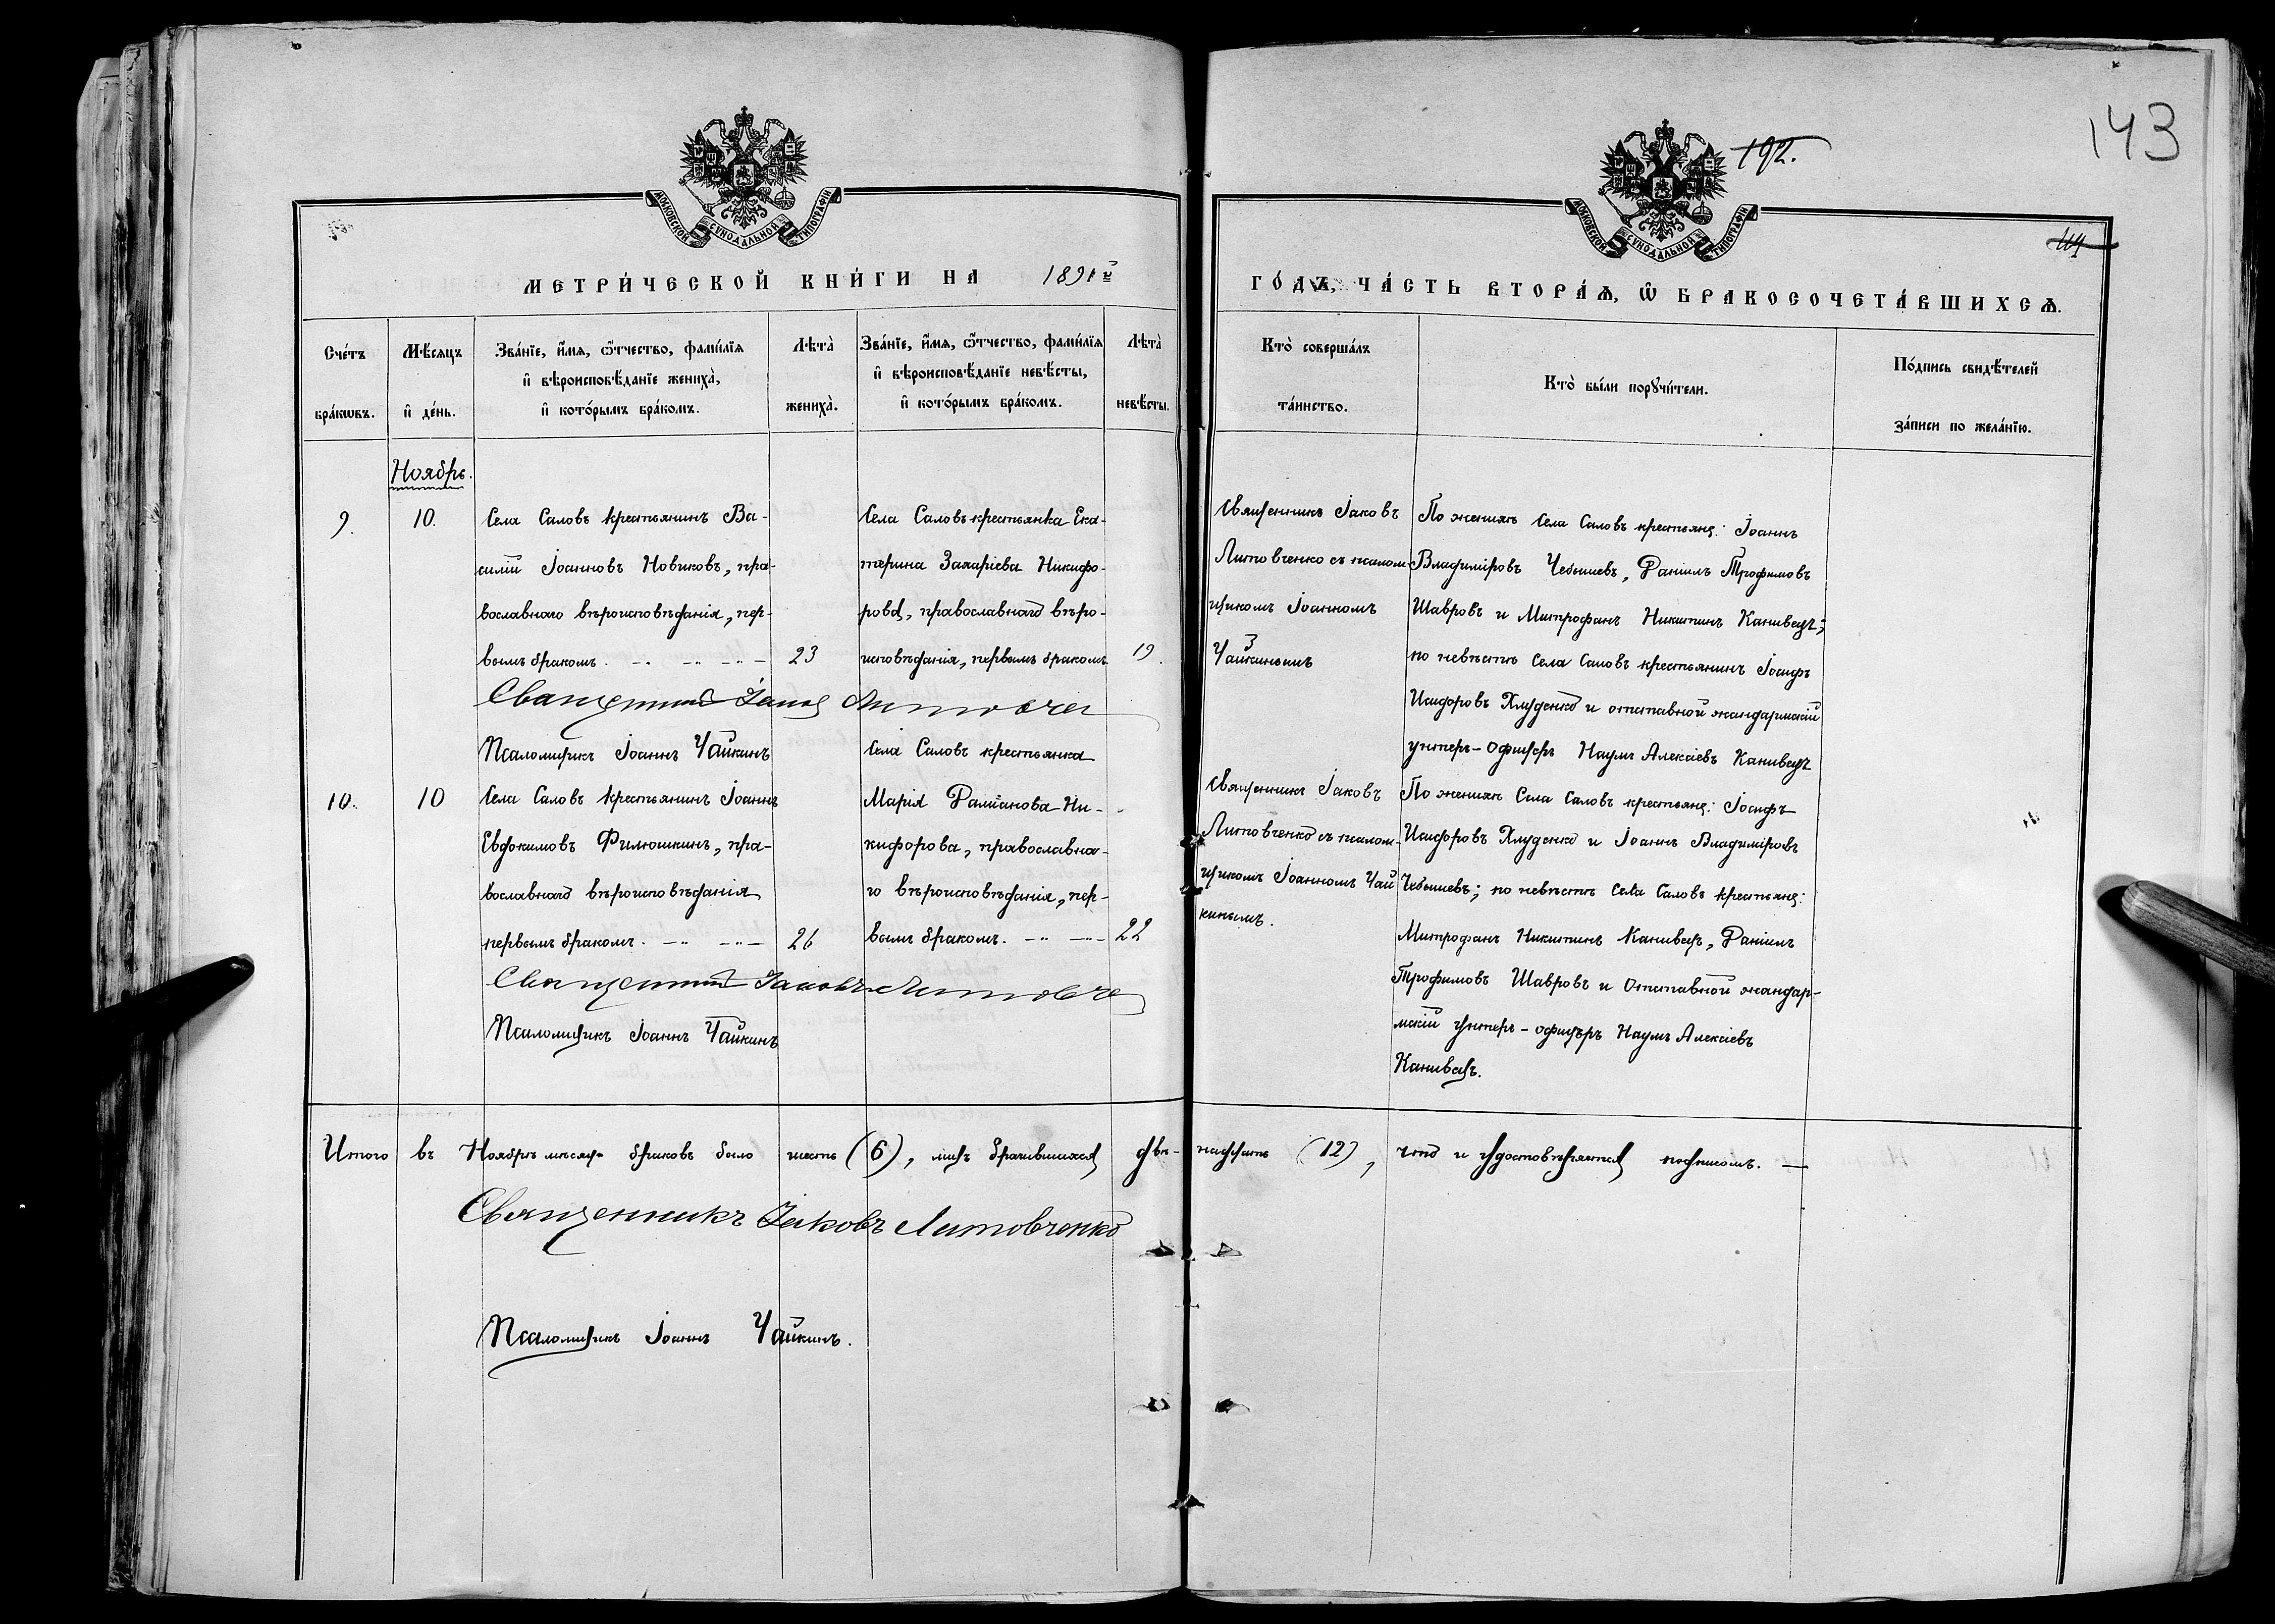 143
192.
114
МОСКОВСКОЙ СѴНОДАЛЬНОЙ ТИПОГРАФІИ
МОСКОВСКОЙ СѴНОДАЛЬНОЙ ТИПОГРАФІИ
МЕТРИ́ЧЕСКОЙ КНИ́ГИ НА 1891й
ГО́ДЪ, ЧА́СТЬ ВТОРА́Ѧ, Ѽ БРАКОСОЧЕТА́ВШИХСѦ.
Сче́тъ бра́кѡвъ.
Мѣ́сяцъ и҆ де́нь.
Зва́нїе, и҆́мя, ѻ҆́тчество, фами́лїя
и҆ вѣроисповѣ́данїе жениха̀,
и҆ кото́рымъ бра́комъ.
Лѣта̀ жениха̀.
Зва́нїе, и҆́мя, ѻ҆́тчество, фами́лїя
и҆ вѣроисповѣ́данїе невѣ́сты,
и҆ кото́рымъ бра́комъ.
Лѣта̀ невѣ́сты.
Кто̀ соверша́лъ
та́инство.
Кто̀ бы́ли порꙋчи́тели.
По́дпись свидѣ́телей
за́писи по жела́нїю.
Ноябрь.
9.
10.
Села Саловъ крестьянинъ Ва-
силій Іоанновъ Новиковъ, пра-
вославнаго вѣроисповѣданія, пер-
вымъ бракомъ.
23
Села Саловъ крестьянка Ека-
терина Захаріева Никифо-
рова, православнаго вѣро-
исповѣданія, первымъ бракомъ
19.
Священникъ Іаковъ
Литовченко съ псалом-
щикомъ Іоанномъ
Чайкинымъ
По женихѣ Села Саловъ крестьяне: Іоаннъ
Владиміровъ Чебышевъ, Даніилъ Трофимовъ
Шавровъ и Митрофанъ Никитинъ Канивецъ;
по невѣстѣ Села Саловъ крестьянинъ Іосифъ
Исидоровъ Хлуденко и отставной жандармскій
унтеръ-офицеръ Наумъ Алексіевъ Канивецъ
Священникъ Іаковъ Литовче
Псаломщикъ Іоаннъ Чайкинъ
10.
10
Села Саловъ крестьянинъ Іоаннъ
Евдокимовъ Филюшкинъ, пра-
вославнаго вѣроисповѣданія
первымъ бракомъ.
26
Села Саловъ крестьянка
Марія Даміанова Ни-
кифорова, православна-
го вѣроисповѣданія, пер-
вымъ бракомъ.
22
Священникъ Іаковъ
Литовченко съ псалом-
щикомъ Іоанномъ Чай
кинымъ.
По женихѣ Села Саловъ крестьяне: Іосифъ
Исидоровъ Хлуденко и Іоаннъ Владиміровъ
Чебышевъ; по невѣстѣ Села Саловъ крестьяне:
Митрофанъ Никитинъ Канивецъ, Даніилъ
Трофимовъ Шавровъ и Отставной жандар-
мскій унтеръ-офицеръ Наумъ Алексіевъ
Канивецъ.
Священникъ Іаковъ Литовче
Псаломщикъ Іоаннъ Чайкинъ
Итого въ Ноябрѣ мѣсяцѣ браковъ было шесть (6), лицъ брачившихся двѣ-надцать (12), что и удостовѣряется подписомъ. —
Священникъ Іаковъ Литовченко
Псаломщикъ Іоаннъ Чайкинъ.